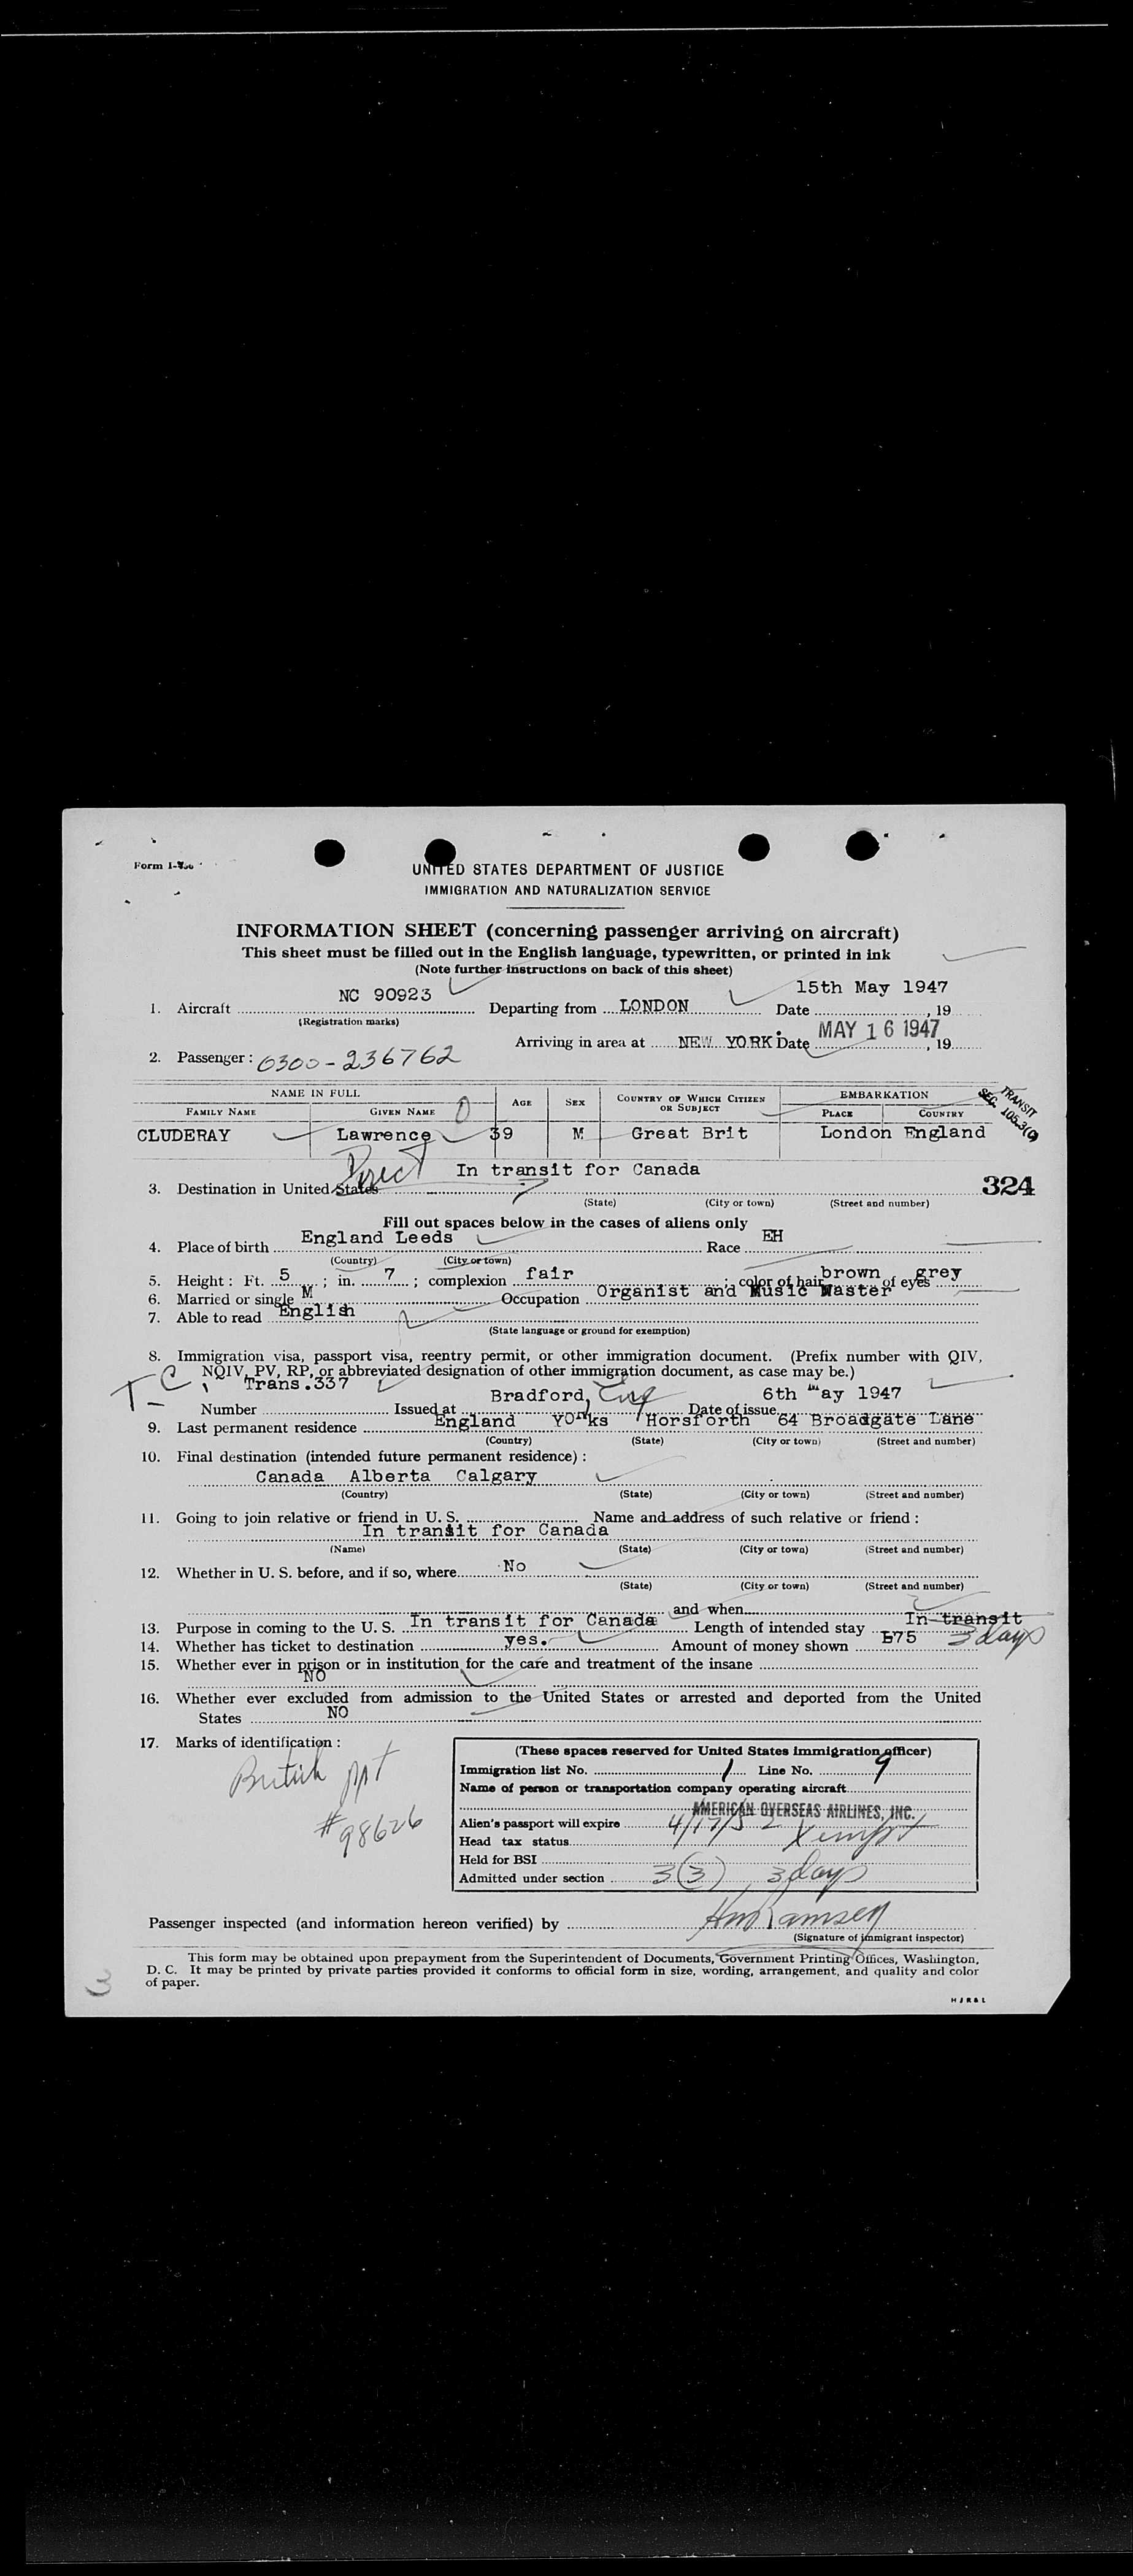 Form I-
UNITED STATES DEPARTMENT OF JUSTICE
IMMIGRATION AND NATURALIZATION SERVICE
INFORMATION SHEET (concerning passenger arriving on aircraft)
This sheet must be filled out in the English language, typewritten, or printed in ink
(Note further instructions on back of this sheet)
1. Aircraft NC 90923 Departing from LONDON Date 15th May 1947, 19
(Registration marks)
Arriving in area at NEW YORK Date MAY 16 1947, 19
2. Passenger: 0300-236762
NAME IN FULL AGE SEX COUNTRY OF WHICH CITIZEN OR SUBJECT EMBARKATION
FAMILY NAME GIVEN NAME PLACE COUNTRY
TRANSIT
SEC. 105.3(c)
CLUDERAY Lawrence 0 39 M Great Brit London England
Direct In transit for Canada
3. Destination in United States 324
(State) (City or town) (Street and number)
Fill out spaces below in the cases of aliens only
4. Place of birth England Leeds Race EH
(Country) (City or town)
5. Height: Ft. 5; in. 7; complexion fair; color of hair brown of eyes grey
6. Married or single M Occupation Organist and Music Master
7. Able to read English
(State language or ground for exemption)
8. Immigration visa, passport visa, reentry permit, or other immigration document. (Prefix number with QIV,
NQIV, PV, RP, or abbreviated designation of other immigration document, as case may be.)
T-C
Number Trans.337 Issued at Bradford, Eng Date of issue 6th May 1947
9. Last permanent residence England Yorks Horsforth 64 Broadgate Lane
(Country) (State) (City or town) (Street and number)
10. Final destination (intended future permanent residence):
Canada Alberta Calgary
(Country) (State) (City or town) (Street and number)
11. Going to join relative or friend in U. S. Name and address of such relative or friend:
In transit for Canada
(Name) (State) (City or town) (Street and number)
12. Whether in U. S. before, and if so, where No
(State) (City or town) (Street and number)
and when
13. Purpose in coming to the U. S. In transit for Canada Length of intended stay In transit 3 days
14. Whether has ticket to destination yes. Amount of money shown £75
15. Whether ever in prison or in institution for the care and treatment of the insane
NO
16. Whether ever excluded from admission to the United States or arrested and deported from the United
States NO
17. Marks of identification:
British ppt
#98626
(These spaces reserved for United States immigration officer)
Immigration list No. 1 Line No. 9
Name of person or transportation company operating aircraft
AMERICAN OVERSEAS AIRLINES, INC.
Alien's passport will expire 4/17/52
Head tax status Xempt
Held for BSI
Admitted under section 3(3) 3 days
Passenger inspected (and information hereon verified) by HM Ramsey
(Signature of immigrant inspector)
This form may be obtained upon prepayment from the Superintendent of Documents, Government Printing Offices, Washington,
D. C. It may be printed by private parties provided it conforms to official form in size, wording, arrangement, and quality and color
of paper.
3
H J R & L